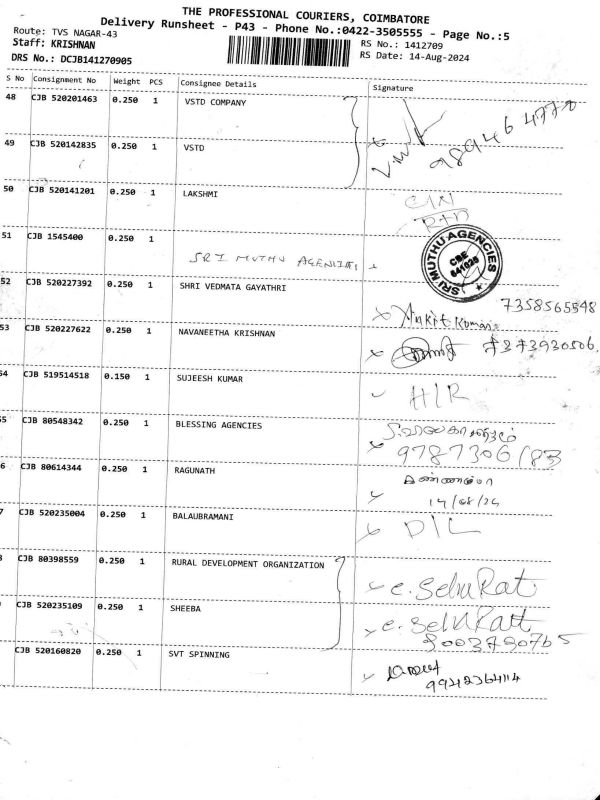 THE PROFESSIONAL COURIERS, COIMBATORE
Delivery Runsheet - P43 - Phone No.:0422-3505555 - Page No.:5
Route: TVS NAGAR-43
Staff: KRISHNAN
RS No.: 1412709
DRS No.: DCJB141270905
RS Date: 14-Aug-2024
S No Consignment No Weight PCS Consignee Details Signature
48 CJB 520201463 0.250 1 VSTD COMPANY
49 CJB 520142835 0.250 1 VSTD
50 CJB 520141201 0.250 1 LAKSHMI
51 CJB 1545400 0.250 1 SRI MUTHU AGENCIES
SRI MUTHU AGENCIES
CBE
641028
52 CJB 520227392 0.250 1 SHRI VEDMATA GAYATHRI Ankit Kumar 7358565548
53 CJB 520227622 0.250 1 NAVANEETHA KRISHNAN 7373930506
54 CJB 519514518 0.150 1 SUJEESH KUMAR H/R
55 CJB 80548342 0.250 1 BLESSING AGENCIES
6 CJB 80614344 0.250 1 RAGUNATH
14/08/24
7 CJB 520235004 0.250 1 BALAUBRAMANI D/L
CJB 80398559 0.250 1 RURAL DEVELOPMENT ORGANIZATION
CJB 520235109 0.250 1 SHEEBA
8003790765
CJB 520160820 0.250 1 SVT SPINNING
9942364114